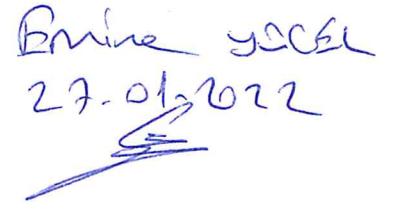 Emine YÜCEL
27.01.2022